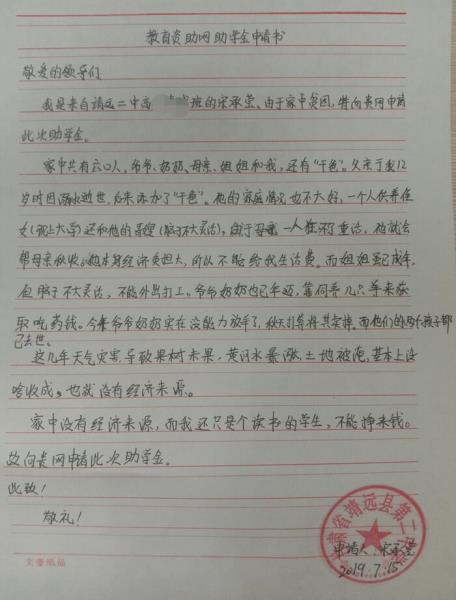 教育资助网助学金申请书
敬爱的领导们
我是来自靖远二中高 班的宋承莹、由于家中贫困，特向贵网申请
此次助学金。
家中共有六口人，爷爷、奶奶、母亲、姐姐和我，还有"干爸"。父亲于我12
岁时因 逝世，后来添加了"干爸"。他的家庭情况也不大好，一个人供养侄
女(现上大学)还和他的 (脑子不大灵活)，由于母亲一人 ，他就会
帮母亲秋收。他本身经济负担大，所以不能给我生活费。而姐姐虽已成年，
但脑子不大灵活，不能外出打工。爷爷奶奶也已年迈，靠向养几只羊来获
取吃药钱。今年爷爷奶奶实在没能力放羊了，秋天打算将其卖掉。而他们的两个孩子都
已去世。
这几年天气灾害导致果树未果，黄河水暴涨，土地被淹，基本上没
啥收成，也就没有经济来源。
家中没有经济来源，而我还只是个读书的学生，不能挣来钱。
故向贵网申请此次助学金。
此致！
敬礼！
肃省靖远县第二
申请人：宋承莹
2019.7.15
文豪纸品